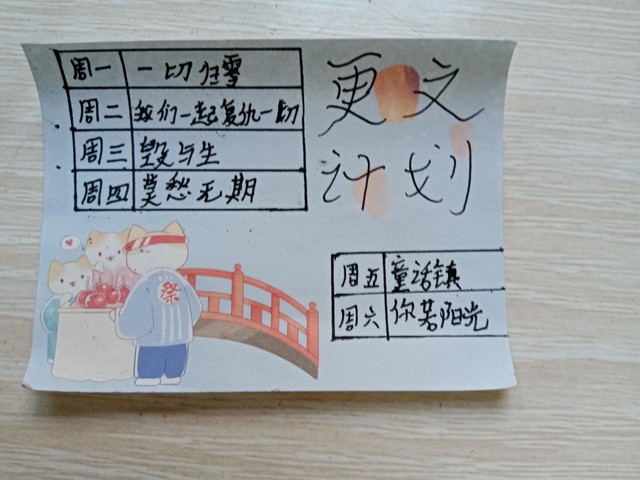 更文
计划
周一 一切归零
周二 我们一起复仇一切
周三 毁与生
周四 莫愁无期
周五 童话镇
周六 你若阳光
祭